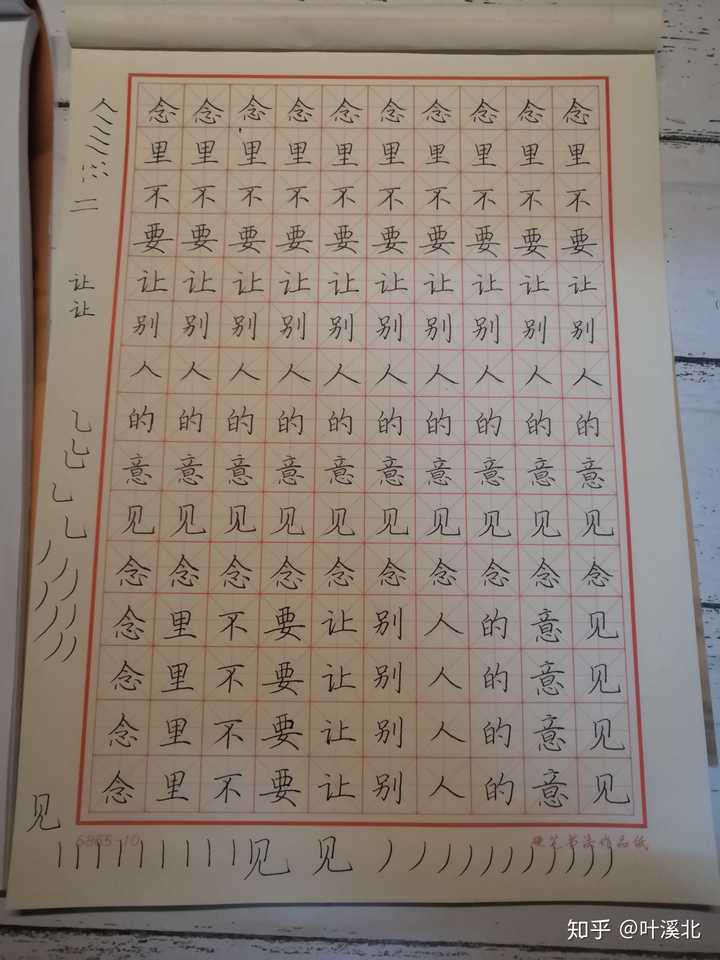 念念念念念念念念念念
里里里里里里里里里里
不不不不不不不不不不
要要要要要要要要要要
让让让让让让让让让让
别别别别别别别别别别
人人人人人人人人人人
的的的的的的的的的的
意意意意意意意意意意
见见见见见见见见见见
念念念念念念念念念念
念里不要让别人的意见
念里不要让别人的意见
念里不要让别人的意见
念里不要让别人的意见
让
让
见
硬笔书法作品纸
见 见
知乎 @叶溪北